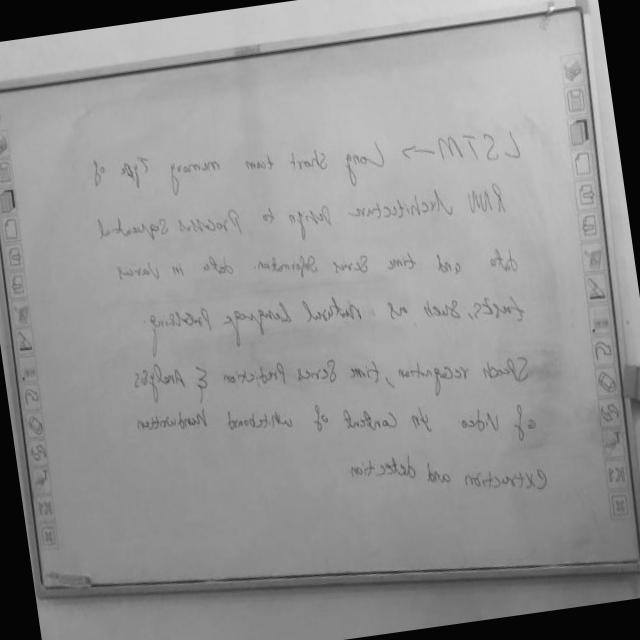 LSTM → Long Short term memory Type of
RNN Architecture Design to Process Sequential
data and time Series data in Various
tasks, Such as Natural Language Processing
Speech recognition, time Series Prediction & Analysis
of Video in Context of whiteboard Handwritten
extraction and detection